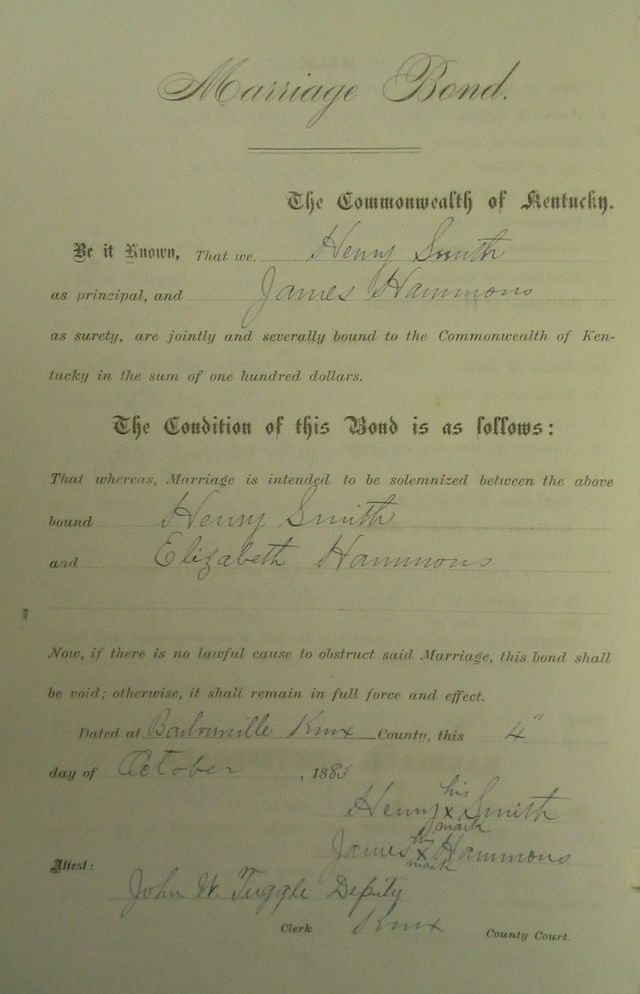 Marriage Bond.
The Commonwealth of Kentucky.
Be it Known, That we, Henry Smith
as principal, and James Hammons
as surety, are jointly and severally bound to the Commonwealth of Ken-
tucky in the sum of one hundred dollars.
The Condition of this Bond is as follows:
That whereas, Marriage is intended to be solemnized between the above
bound Henry Smith
and Elizabeth Hammons
Now, if there is no lawful cause to obstruct said Marriage, this bond shall
be void; otherwise, it shall remain in full force and effect.
Dated at Barbourville Knox County, this 4"
day of October, 1885
his
Henry x Smith
mark
his
James x Hammons
mark
Attest:
John W. Tuggle Deputy
Clerk Knox County Court.